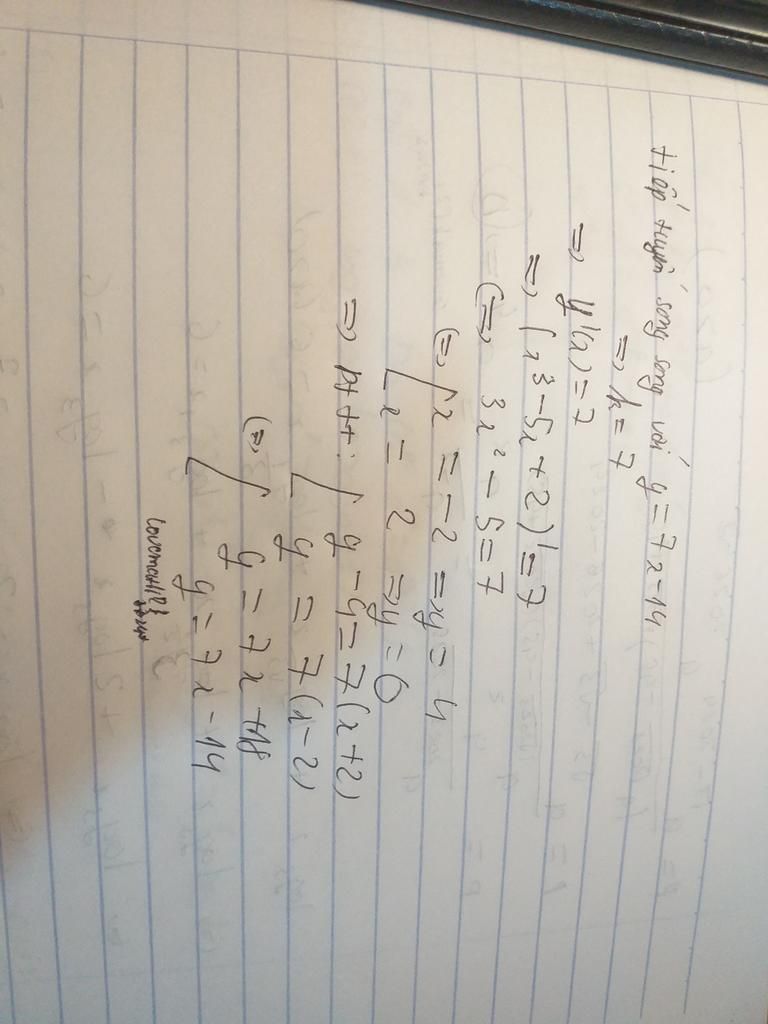 tiếp tuyến song song với y = 7x - 14
=> k = 7
=> y'(x) = 7
=> (x³ - 5x + 2)' = 7
<=> 3x² - 5 = 7
<=> [ x = -2 => y = 4
x = 2 => y = 0
=> pttt: [ y - 4 = 7(x + 2)
y = 7(x - 2)
<=> [ y = 7x + 18
y = 7x - 14